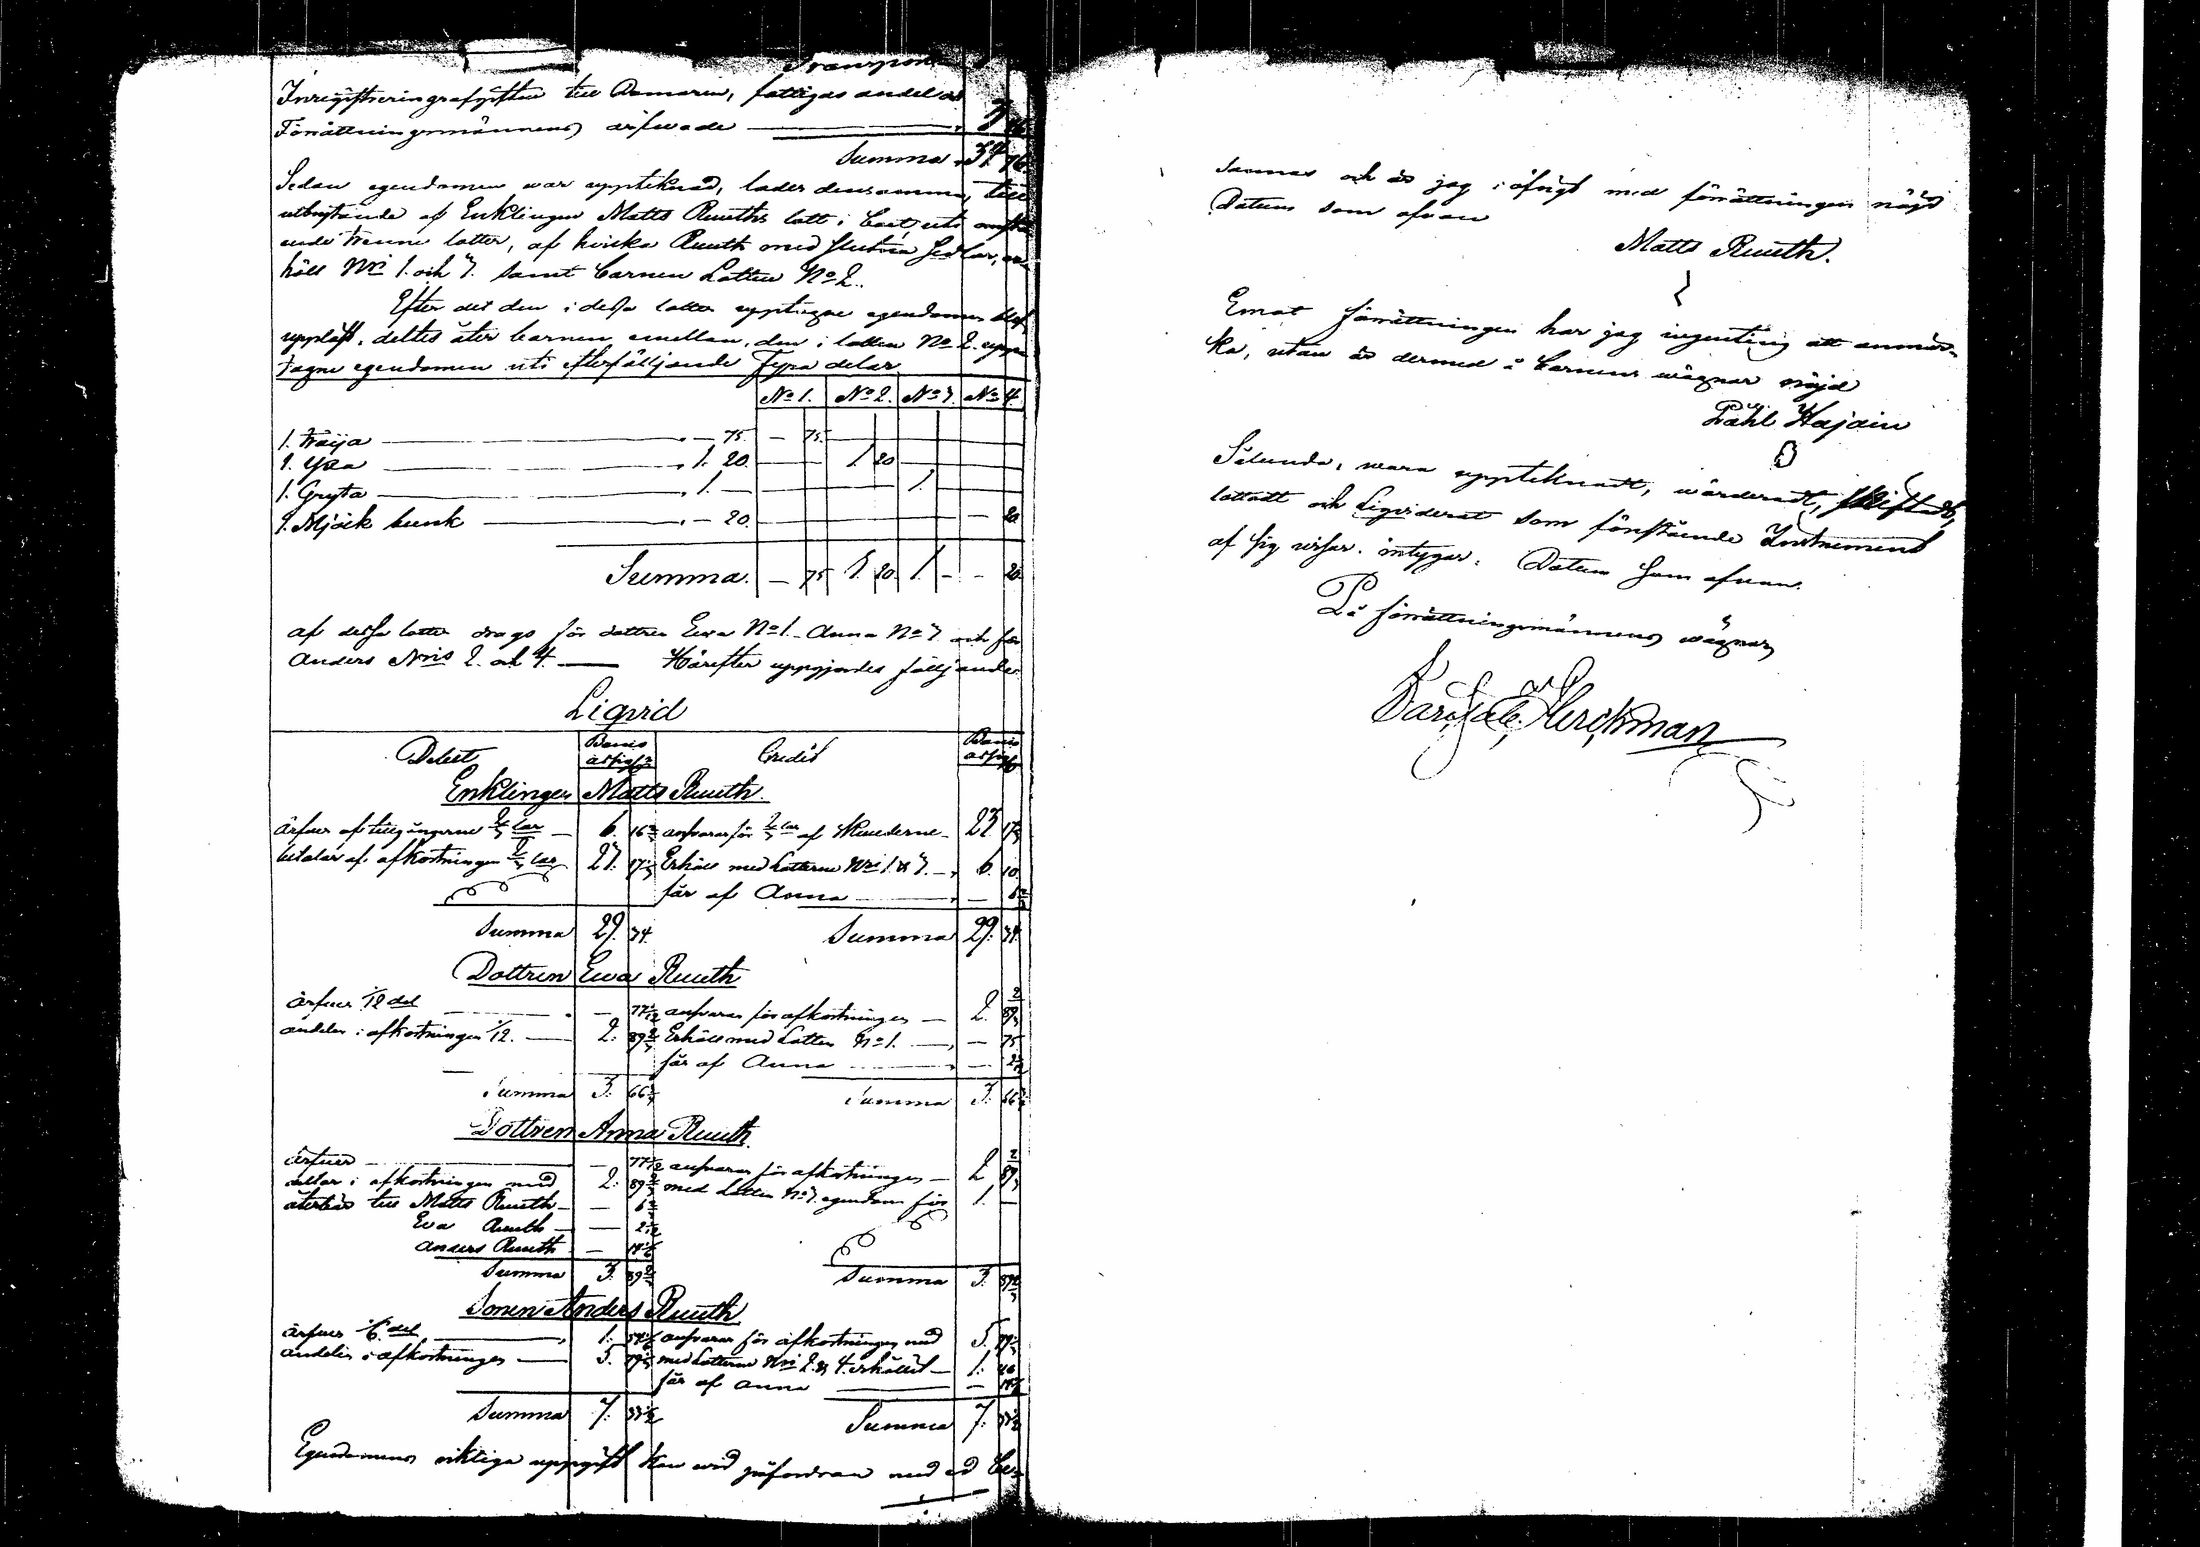 Transport
Inregistreringsafgiften till Domaren, fattigas andel och
Förrättningsmännens arfwode — 3
Summa 34 76
Sedan egendomen war uppteknad, lades densamma, till
utbrytande af Enklingen Matts Ruuths lott i boet, uti
trenne lotter, af hvilka Ruuth med slutna Sedlar,
höll Nris 1. och 3. samt barnen Lotten No 2.
Efter det den i dessa lotter upptagne egendomen blef
uppläst, deltes åter barnen emellan, den i lotten No 2. upp-
tagne egendomen uti efterföljjande Fyra delar
No 1. No 2. No 3. No 4.
1. tröija — 75. — 75.
1. yxa — 1. 20. 1. 20
1. Gryta — 1. — 1.
1. Mjölk bunk — 20. — 20.
Summa. — 75 1. 20. 1. — — 20
af dessa lotter drogs för dottren Ewa No 1. Anna No 3 och för
Anders Nris 2. och 4. — Härefter uppgjordes följjande
Liqvid
Debet Credit
Enklingen Matts Ruuth.
ärfver af tillgångarne 2/3 lar — 6. 16 2/3 ansvarar för 2/3 lar af skulderne — 23 17 1/3
betalar af afkortningen 2/3 lar 23. 17 1/3 Erhöll med Lotterne Nris 1. & 3. — 6. 10.
får af Anna — — 6 2/3
Summa 29. 34. Summa 29. 34.
Dottren Ewa Ruuth
ärfver 1/12 del — 77 1/12 ansvarar för afkortningen — 2. 89 2/3
andelen i afkortningen 1/12. — 2. 89 2/3 Erhöll med Lotten No 1. — — 75
får af Anna — — 2 1/12
Summa 3. 66 3/4 Summa 3. 66 3/4
Dottren Anna Ruuth.
ärfver — — 77 1/12 ansvarar för afkortningen — 2 89 2/3
deltar i afkortningen med 2. 89 2/3 med Lotten No 3. egendom för 1. —
återbär till Matts Ruuth — — 6 2/3
Ewa Ruuth — — 2 1/12
Anders Ruuth — 14 1/6
Summa 3. 89 2/3 Summa 3. 89 2/3
Sonen Anders Ruuth
ärfver 1/6 del — 1. 54 1/6 ansvarar för afkortningen med 5. 79 1/3
andelen i afkortningen — 5. 79 1/3 med Lotterne Nris 2. & 4. erhållit — 1. 40
får af Anna — — 14 1/6
Summa 7. 33 1/2 Summa 7. 33 1/2
Egendomens riktiga uppgift kan wid påfordran med ed be-
sannas och är jag i öfrigt med förrättningen nöjd
Datum som ofvan
Matts Ruuth.
Emot förrättningen har jag ingenting att anmär-
ka, utan är dermed å barnens wägnar nöjd
Påhl Hajain
Sålunda, wara upptecknadt, wärderadt, skiftadt,
lottadt och Liqviderat som förestående Instrument
af sig wisar. intygar. Datum som ofvan.
På förrättningsmännens wägnar